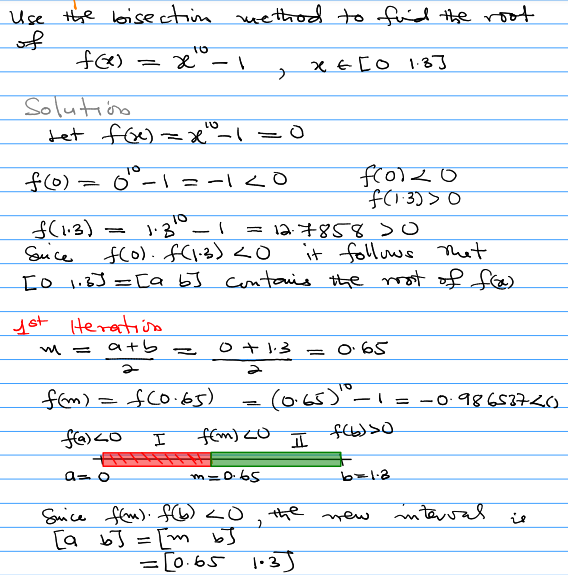 Use the bisection method to find the root
of
f(x) = x¹⁰ - 1 , x ∈ [0 1.3]
Solution
Let f(x) = x¹⁰ - 1 = 0
f(0) = 0¹⁰ - 1 = -1 < 0 f(0) < 0
f(1.3) > 0
f(1.3) = 1.3¹⁰ - 1 = 12.7858 > 0
Since f(0). f(1.3) < 0 it follows that
[0 1.3] = [a b] contains the root of f(x)
1st Iteration
m = a+b/2 = 0+1.3/2 = 0.65
f(m) = f(0.65) = (0.65)¹⁰ - 1 = -0.986537 < 0
f(a)<0 I f(m)<0 II f(b)>0
a= 0 m=0.65 b=1.3
Since f(m). f(b) < 0, the new interval is
[a b] = [m b]
= [0.65 1.3]